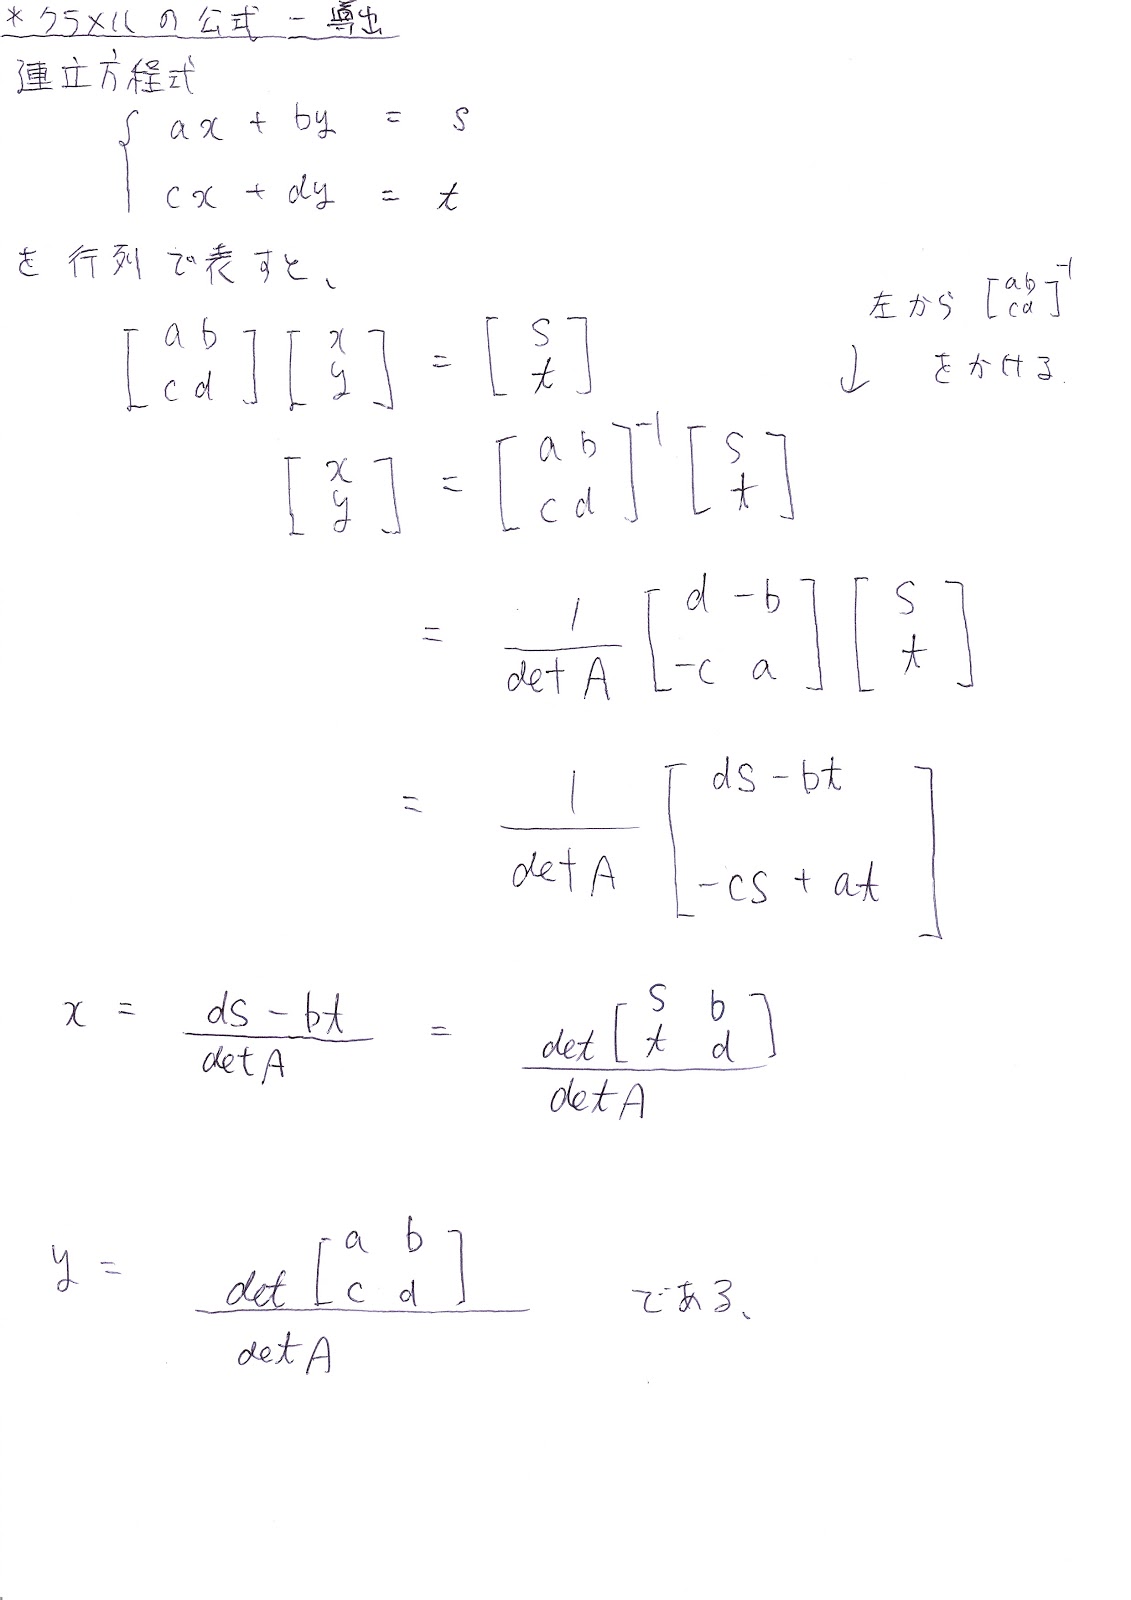 *クラメルの公式 - 導出
連立方程式
{ ax + by = s
cx + dy = t
を行列で表すと、
左から [a b c d]^-1
をかける
[a b c d] [x y] = [s t]
[x y] = [a b c d]^-1 [s t]
= 1/det A [d -b -c a] [s t]
= 1/det A [ds - bt -cs + at]
x = ds - bt/det A = det [s b t d]/det A
y = det [a b c d]/det A である、